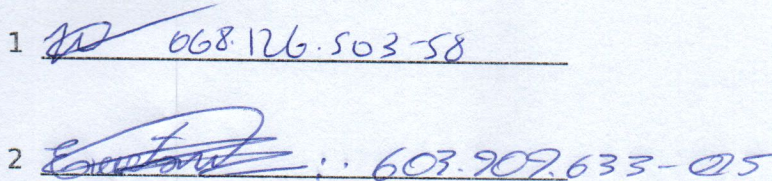 1 068.126.503-58
2 : 603.909.633-05